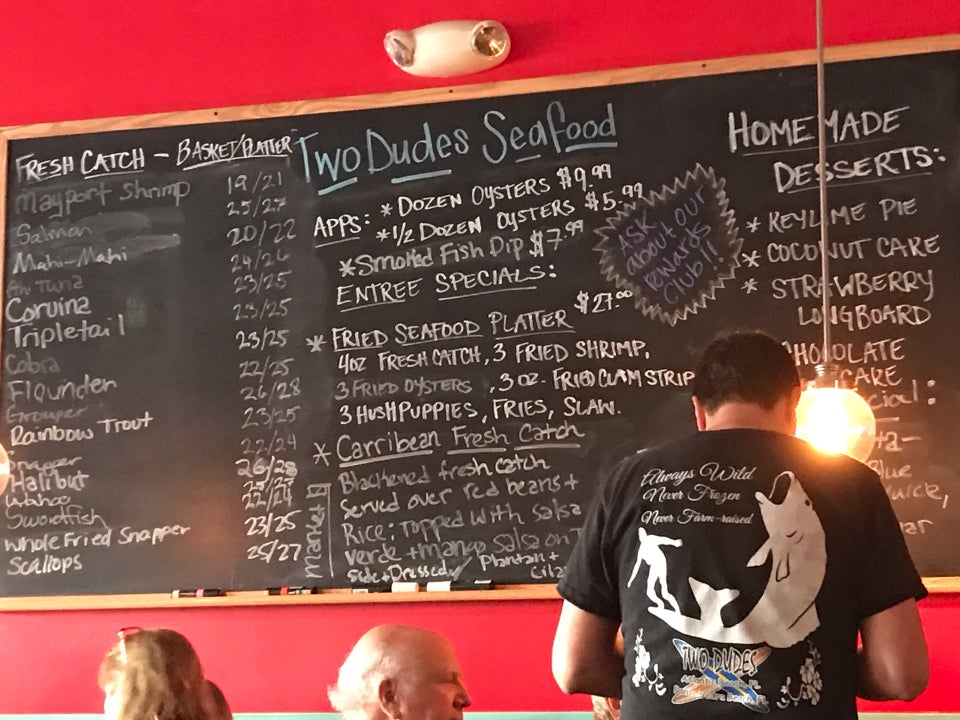 FRESH CATCH - BASKET/PLATTER
Mayport Shrimp 19/21
Salmon 25/27
Mahi-Mahi 20/22
Ahi Tuna 24/26
Corvina 23/25
Tripletail 23/25
Cobia 23/25
Flounder 22/25
Grouper 26/28
Rainbow Trout 23/25
Snapper 22/24
Halibut 26/28
Wahoo 23/25
Swordfish 22/24
Whole Fried Snapper 23/25
Scallops 25/27
Market
Two Dudes Seafood
APPS: * DOZEN OYSTERS $9.99
* 1/2 DOZEN OYSTERS $5.99
* Smoked Fish Dip $7.99
ENTREE SPECIALS:
$27.00
* FRIED SEAFOOD PLATTER
4OZ FRESH CATCH, 3 FRIED SHRIMP,
3 FRIED OYSTERS, 3 OZ. FRIED CLAM STRIP
3 HUSHPUPPIES, FRIES, SLAW.
* Carribean Fresh Catch
Blackened fresh catch
served over red beans +
Rice; topped with salsa
verde + mango salsa on
side + Dressed Plantain +
Cila
ASK
about our
rewards
Club!!
HOMEMADE
DESSERTS:
* KEYLIME PIE
* COCONUT CAKE
* STRAWBERRY
LONGBOARD
CHOCOLATE
CAKE
cial:
ta-
lue
Always Wild
Never Frozen
Never Farm-raised
TWO DUDES
Atlantic Beach, FL